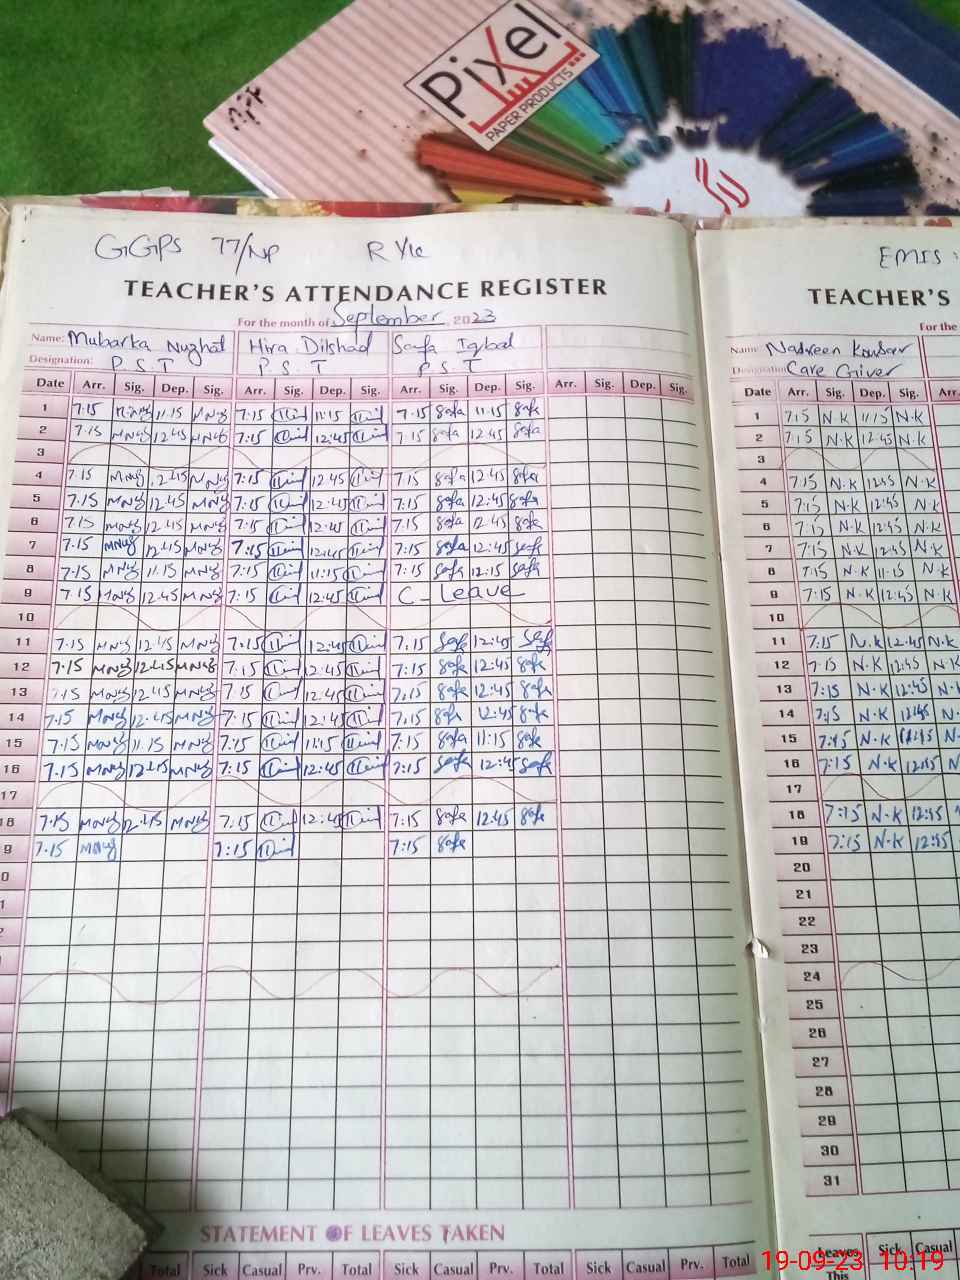 Pixel
PAPER PRODUCTS
GGPS 77/NP R Yk
TEACHER'S ATTENDANCE REGISTER
For the month of September, 2023
Name: Mubarka Nuzhat Hira Dilshad Safa Iqbal
Designation: P.S.T P.S.T P.S.T
Date Arr. Sig. Dep. Sig. Arr. Sig. Dep. Sig. Arr. Sig. Dep. Sig. Arr. Sig. Dep. Sig.
1 7:15 11:15 7:15 11:15 7:15 safa 11:15 safa
2 7:15 MNuz 12:45 MNuz 7:15 12:45 7:15 safa 12:45 safa
3
4 7:15 MNuz 12:45 MNuz 7:15 12:45 7:15 safa 12:45 safa
5 7:15 MNuz 12:45 MNuz 7:15 12:45 7:15 safa 12:45 safa
6 7:15 MNuz 12:45 MNuz 7:15 12:45 7:15 safa 12:45 safa
7 7:15 MNuz 12:45 MNuz 7:15 12:45 7:15 safa 12:45 safa
8 7:15 MNuz 11:15 MNuz 7:15 11:15 7:15 safa 12:15 safa
9 7:15 MNuz 12:45 MNuz 7:15 12:45 C_ Leave
10
11 7:15 MNuz 12:45 MNuz 7:15 12:45 7:15 safa 12:45 safa
12 7:15 MNuz 12:45 MNuz 7:15 12:45 7:15 safa 12:45 safa
13 7:15 MNuz 12:45 MNuz 7:15 12:45 7:15 safa 12:45 safa
14 7:15 MNuz 12:45 MNuz 7:15 12:45 7:15 safa 12:45 safa
15 7:15 MNuz 11:15 MNuz 7:15 11:15 7:15 safa 11:15 safa
16 7:15 MNuz 12:45 MNuz 7:15 12:45 7:15 safa 12:45 safa
17
18 7:15 MNuz 12:45 MNuz 7:15 12:45 7:15 safa 12:45 safa
9 7:15 MNuz 7:15 7:15 safa
0
1
2
STATEMENT OF LEAVES TAKEN
Total Sick Casual Prv. Total Sick Casual Prv. Total Sick Casual Prv. Total
EMIS:
TEACHER'S
For the
Name: Nasreen Kousar
Designation: Care Giver
Date Arr. Sig. Dep. Sig. Arr.
1 7:15 N.K 11:15 N.K
2 7:15 N.K 12:45 N.K
3
4 7:15 N.K 12:45 N.K
5 7:15 N.K 12:45 N.K
6 7:15 N.K 12:45 N.K
7 7:15 N.K 12:45 N.K
8 7:15 N.K 11:15 N.K
9 7:15 N.K 12:45 N.K
10
11 7:15 N.K 12:45 N.K
12 7:15 N.K 12:45 N.K
13 7:15 N.K 12:45 N
14 7:15 N.K 12:45 N
15 7:15 N.K N.
16 7:15 N.K 12:45 N
17
18 7:15 N.K 12:45
19 7:15 N.K 12:45
20
21
22
23
24
25
26
27
28
29
30
31
Leaves Sick Casual
This
19-09-23 10:19